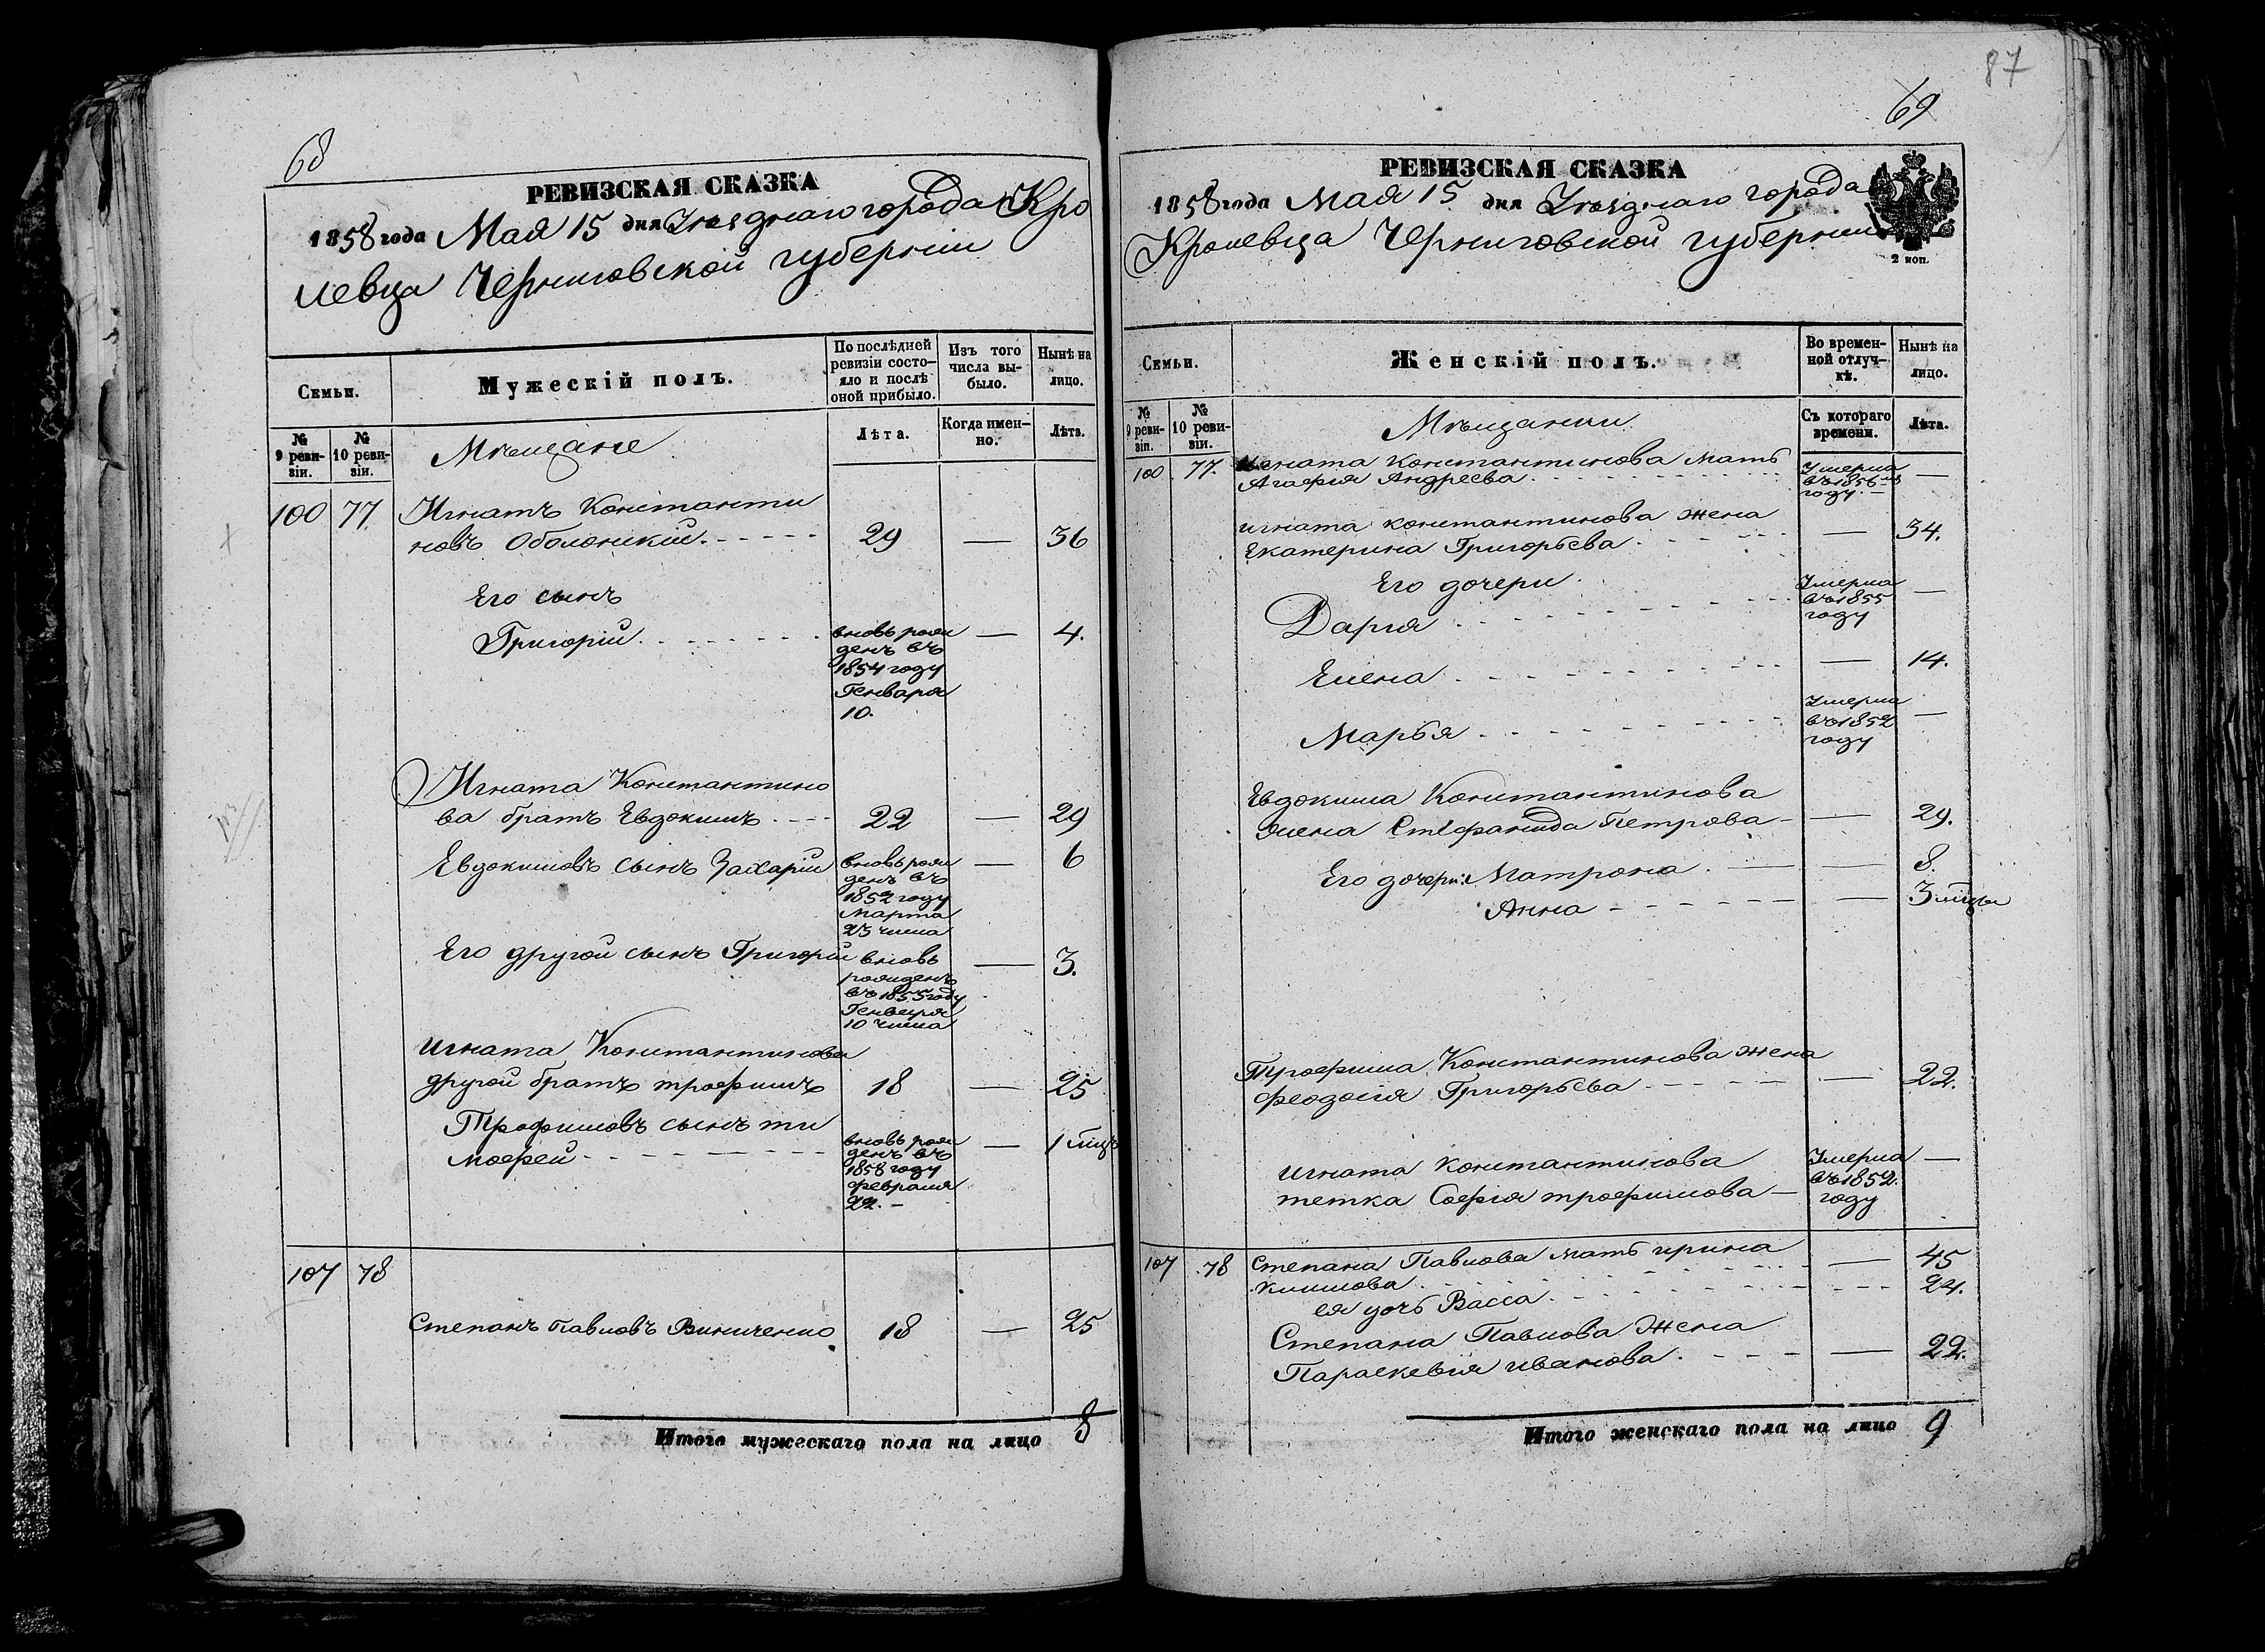 68
РЕВИЗСКАЯ СКАЗКА
1858 года Мая 15 дня Уѣзднаго города Кро
левца Черниговской губерніи
Семьи.
Мужескій полъ.
По послѣдней ревизіи состо-
яло и послѣ
оной прибыло.
Изъ того
числа вы-
было.
Нынѣ на
лицо.
№
9 реви-
зіи.
№
10 реви-
зіи.
Мѣщане
Лѣта.
Когда имен-
но.
Лѣта.
100 77. Игнатъ Константи
новъ Оболонскій. 29 — 36
Его сынъ
Григорій. вновь рож — 4.
денъ въ
1854 году
Генваря
10.
Игната Константино
ва братъ Евдокимъ 22 — 29
Евдокимовъ сынъ Захарій вновь рож — 6
денъ въ
1852 году
Марта
23 числа
Его другой сынъ Григорій вновь — 3.
рожденъ
въ 1855 году
Генваря
10 числа
Игната Константинова
другой братъ трофимъ 18 — 25
Трофимовъ сынъ ти
мофей вновь рож — 1 мцъ
денъ въ
1858 году
февраля
22. —
107 78
Степанъ Павловъ Виниченко 18 — 25
Итого мужескаго пола на лицо 8
87
69
РЕВИЗСКАЯ СКАЗКА
1858 года Мая 15 дня Уѣзднаго города
Кролевца Черниговской губерніи
2 коп.
Семьи.
Женскій полъ.
Во времен-
ной отлуч-
кѣ.
Нынѣ на
лицо.
№
9 реви-
зіи.
№
10 реви-
зіи.
Мѣщанки.
Съ котораго
времени.
Лѣта.
100 77. Игната Константинова мать
Агафія Андреева. Умерла
въ 1856
году. — —
игната константинова жена
Екатерина Григорьева — 34.
Его дочери
Дарья Умерла
въ 1855
году —
Елена — 14.
Марья Умерла
въ 1852
году —
Евдокима Константинова
жена Стефанида Петрова — — 29.
Его дочери: Матрона. — 8.
Анна — 3 мцы
Трофима Константинова жена
феодосія Григорьева — 22.
игната константинова
тетка Софія трофимова — Умерла
въ 1852.
году —
107 78 Степана Павлова мать ирина — 45
климова.
ея дочь Васса. 24.
Степана Павлова Жена
Параскевія иванова. — 22.
Итого женскаго пола на лицо 9